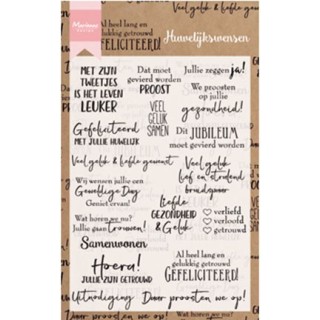 Marianne
Al heel lang en
gelukkig getrouwd
GEFELICITEERD!
Huwelijkswensen
Veel geluk & liefde gewenst
MET ZIJN
TWEETJES
IS HET LEVEN
LEUKER
Dat moet
gevierd worden
PROOST
Jullie zeggen ja!
We proosten
op jullie
gezondheid!
VEEL
GELUK
SAMEN
Gefeliciteerd
MET JULLIE HUWELIJK
Dit JUBILEUM
moet gevierd worden
Veel geluk & liefde gewenst
Veel geluk
lief en stralend
bruidspaar
Wij wensen jullie een
Geweldige Dag
Geniet ervan!
Liefde
GEZONDHEID
& Geluk
verliefd
verloofd
getrouwd
Wat horen we nu?
Jullie gaan trouwen!
Samenwonen
Hoera!
JULLIE ZIJN GETROUWD
Al heel lang en
gelukkig getrouwd
GEFELICITEERD!
Uitnodiging
Daar proosten we op!